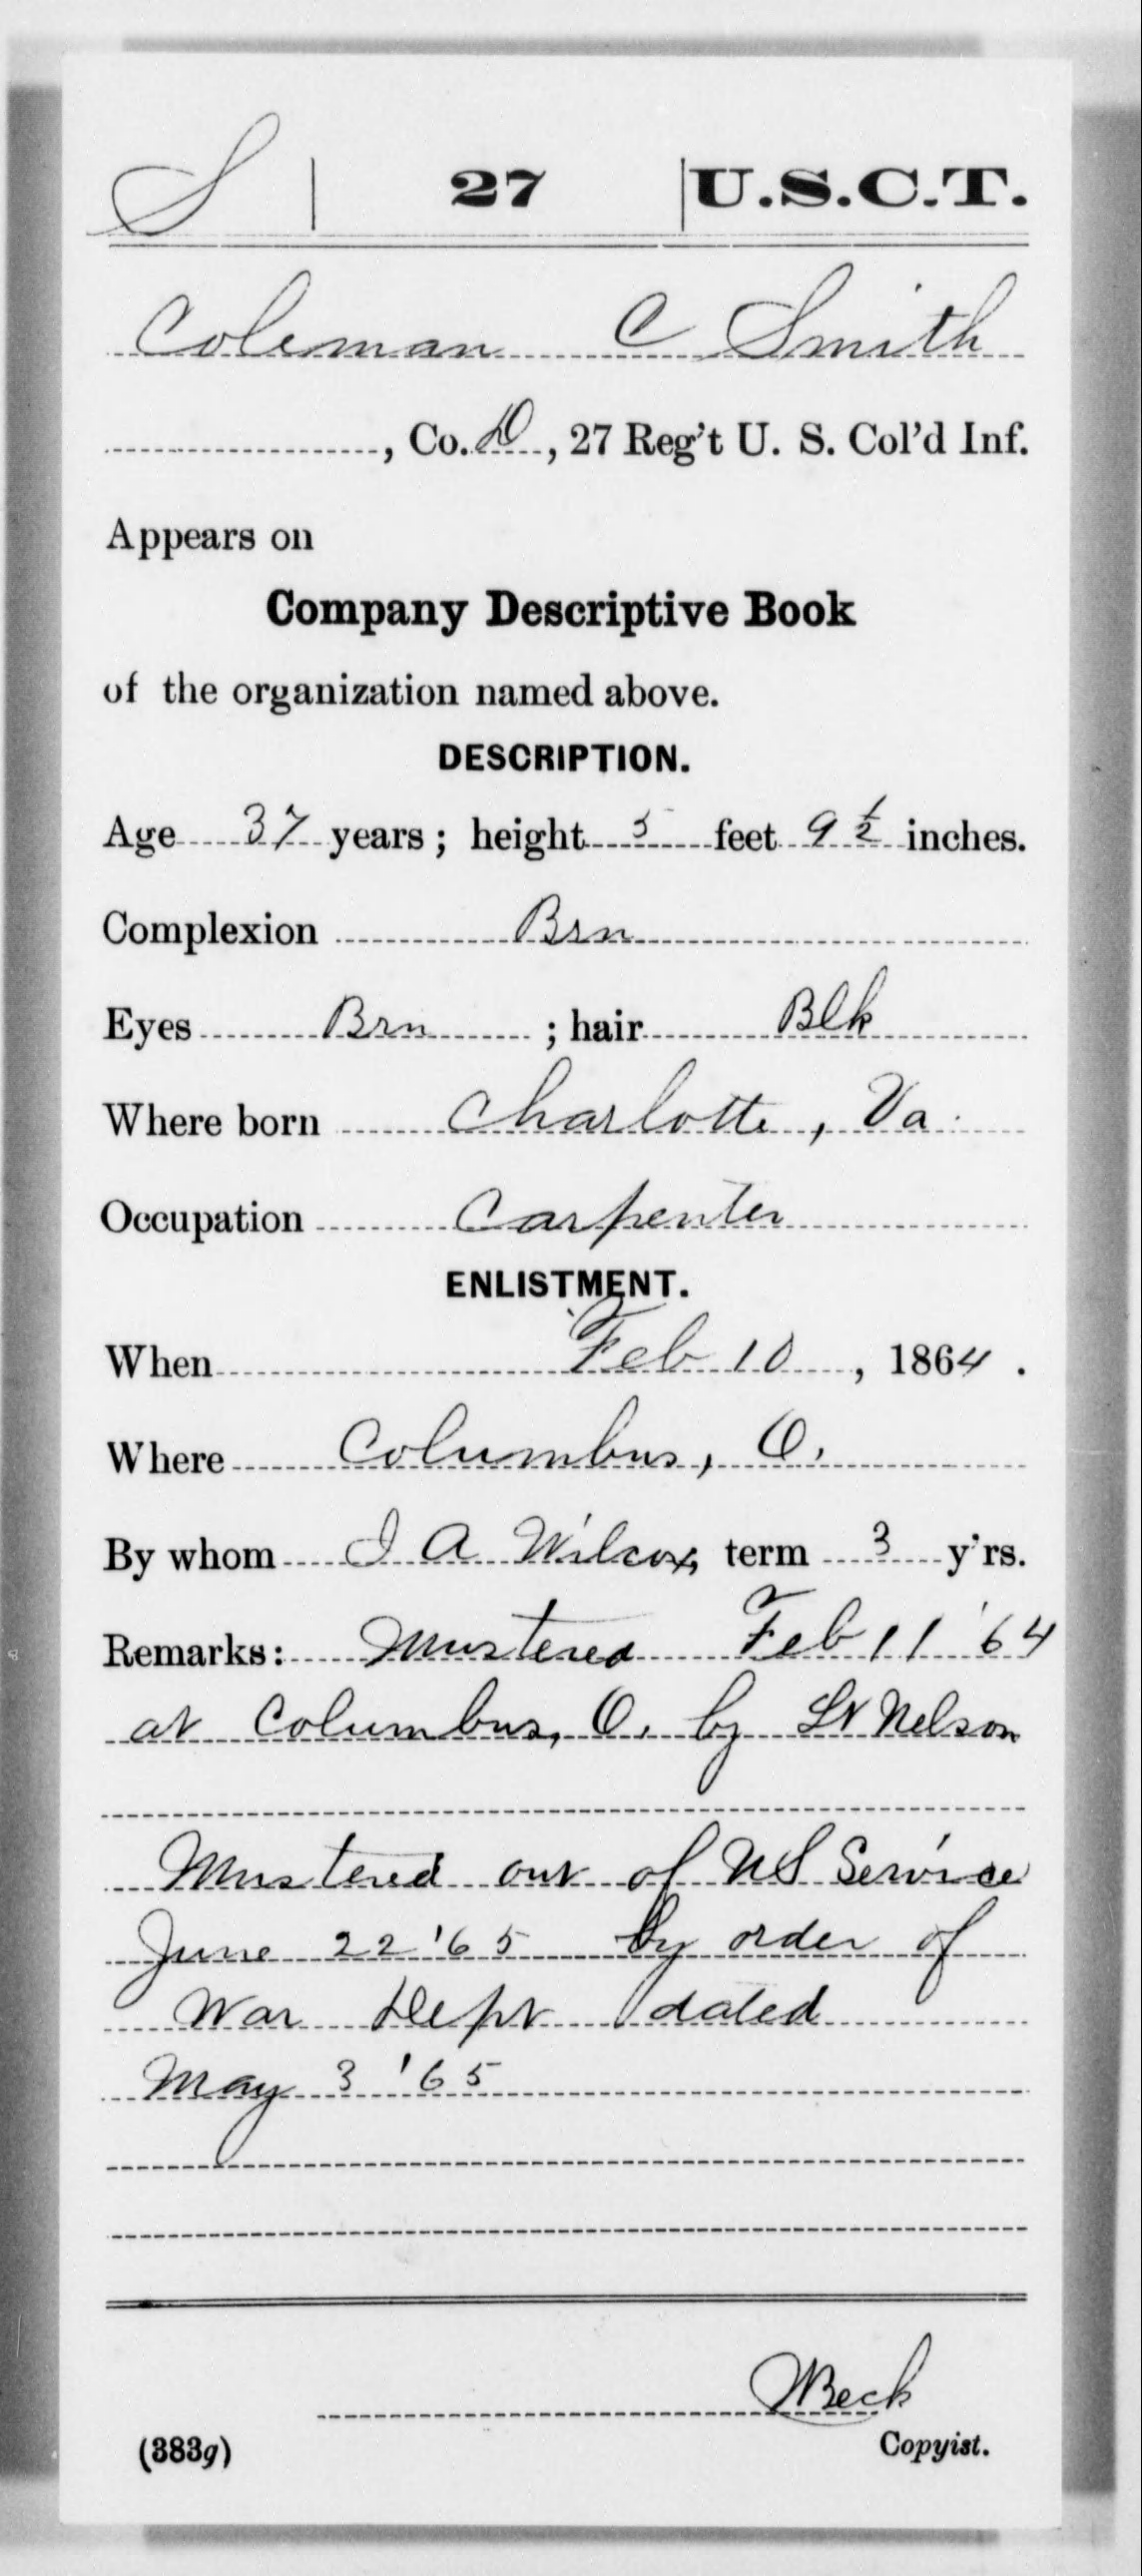 S | 27 | U.S.C.T.
Coleman C Smith
, Co. D, 27 Reg't U. S. Col'd Inf.
Appears on
Company Descriptive Book
of the organization named above.
DESCRIPTION.
Age 37 years; height 5 feet 9 ½ inches.
Complexion Brn
Eyes Brn ; hair Blk
Where born Charlotte, Va.
Occupation Carpenter
ENLISTMENT.
When Feb 10, 1864.
Where Columbus, O.
By whom J A Wilcox, term 3 y'rs.
Remarks: Mustered Feb 11 '64
at Columbus, O. by Lt Nelson
Mustered out of US Service
June 22 '65 by order of
War Dept dated
May 3 '65
Beck
(383g) Copyist.